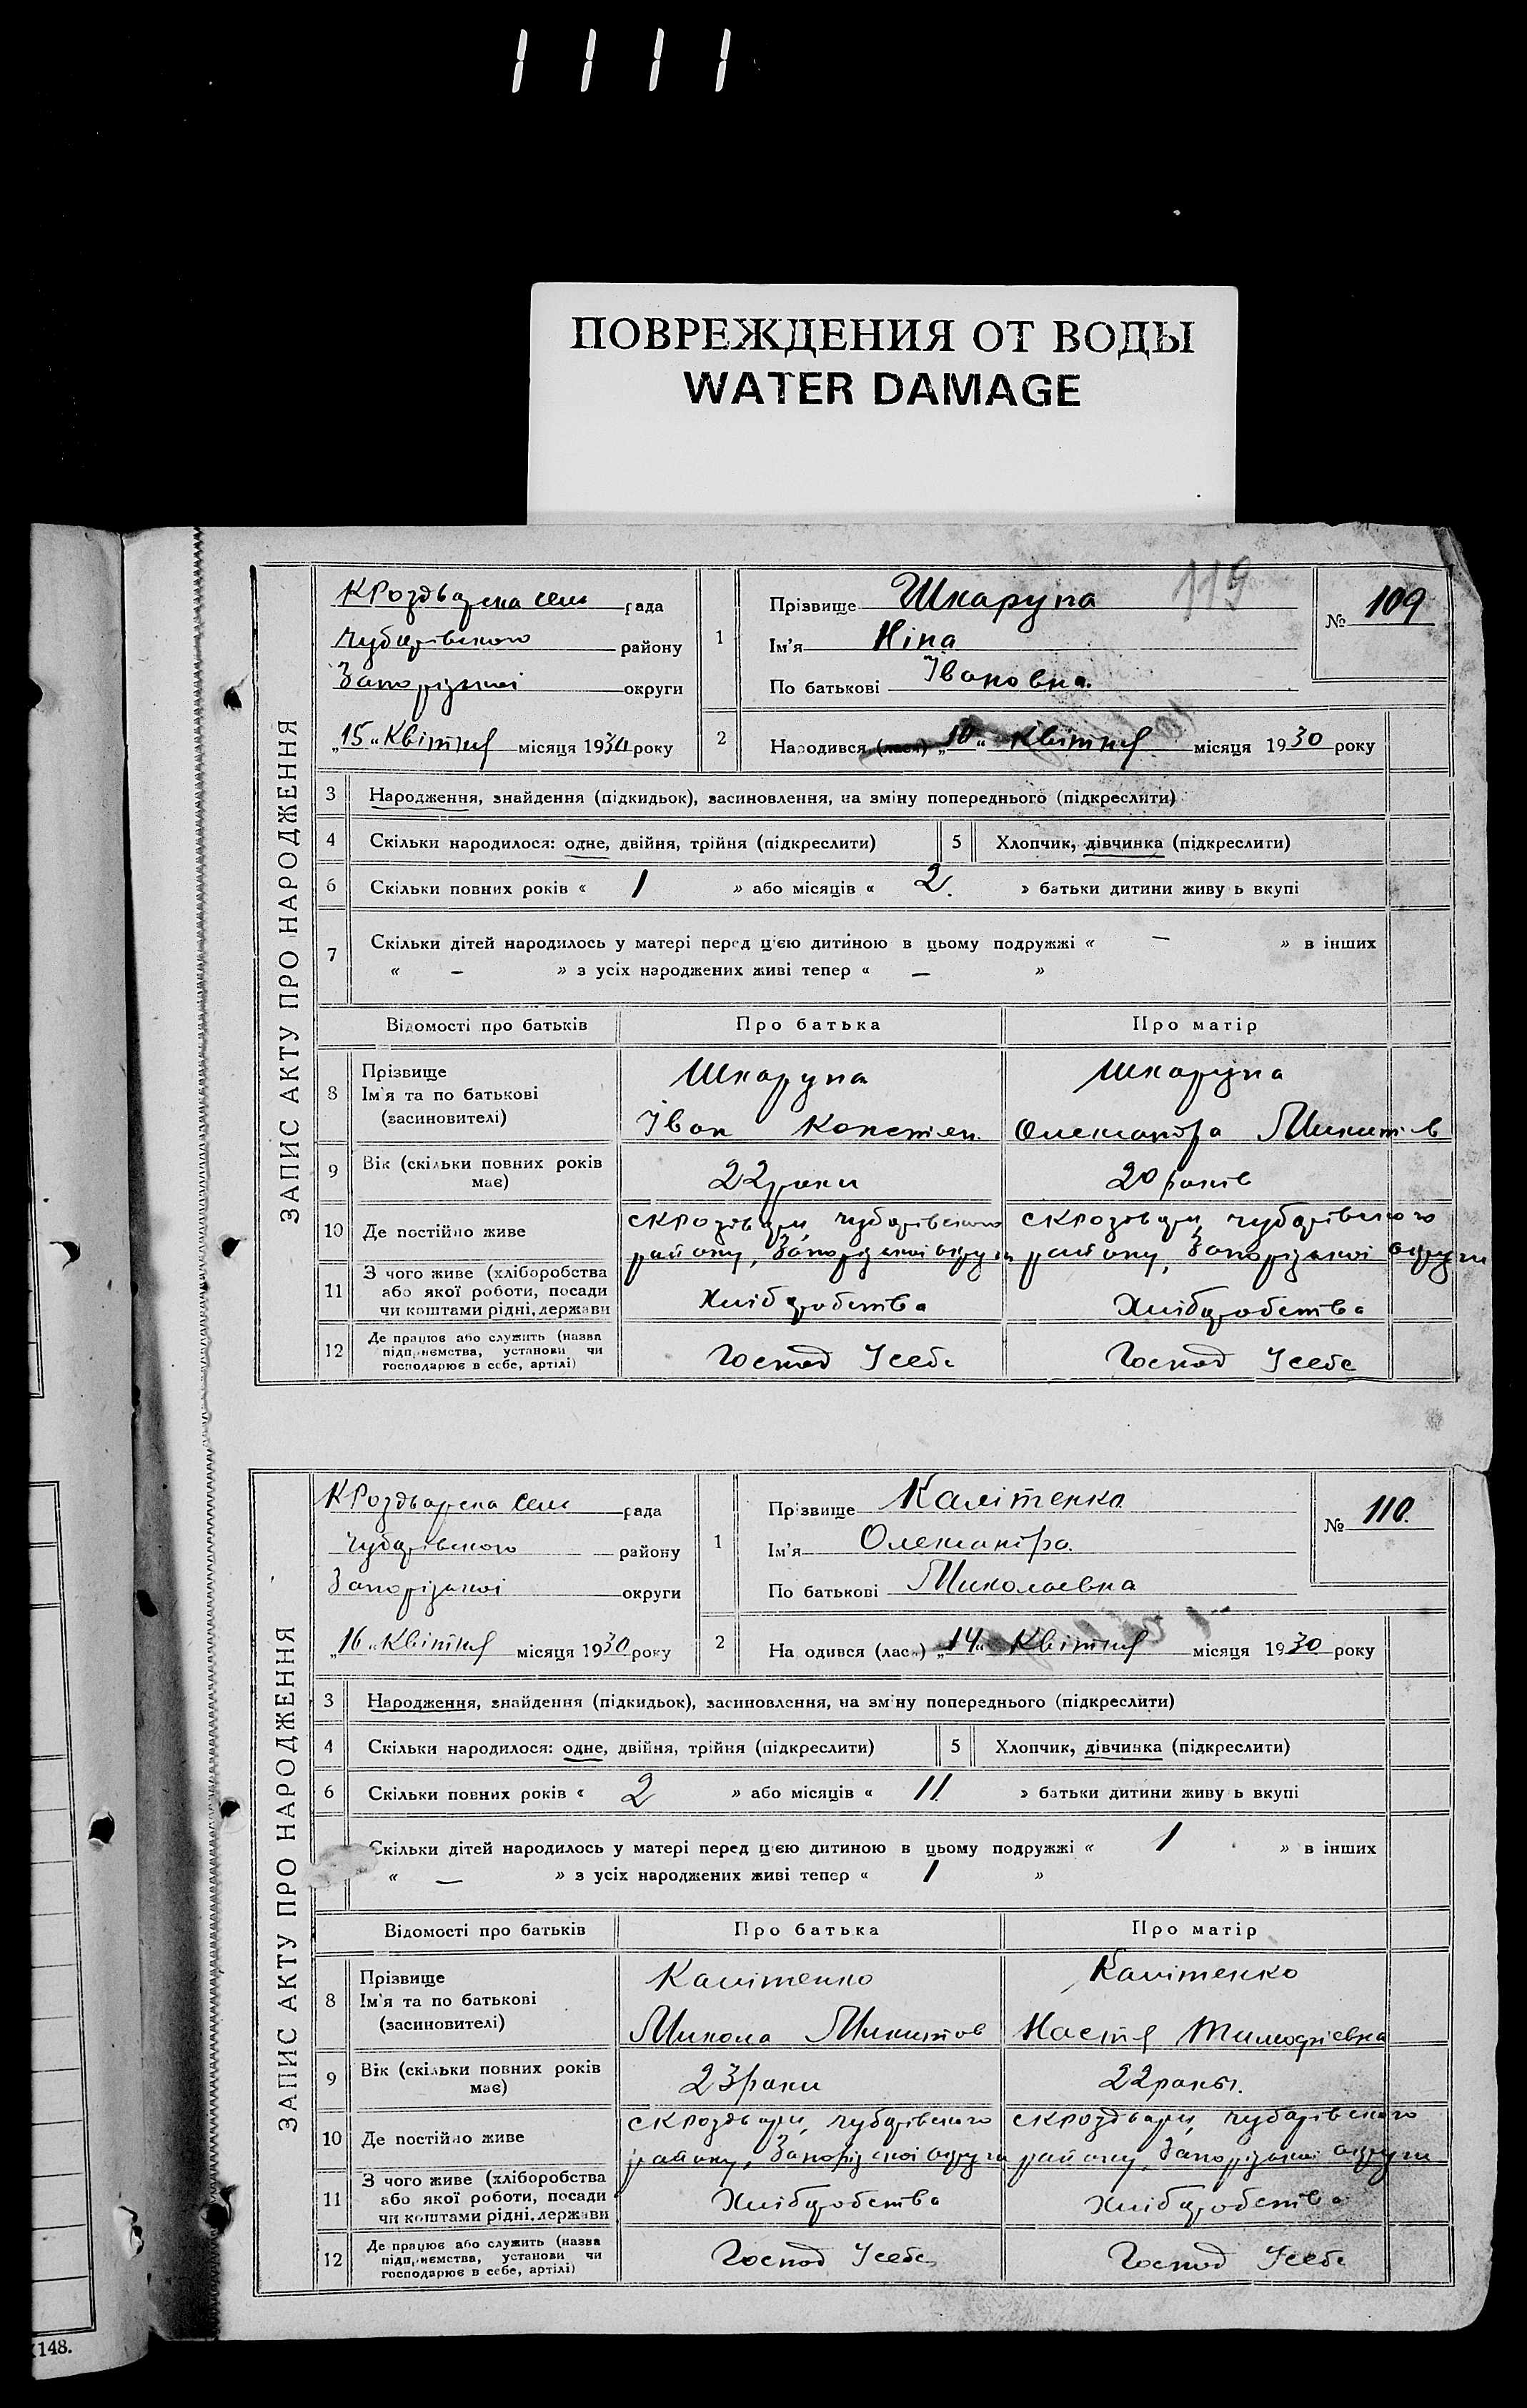 1 1 1 1
ПОВРЕЖДЕНИЯ ОТ ВОДЫ
WATER DAMAGE
119
ЗАПИС АКТУ ПРО НАРОДЖЕННЯ
рада
району
Запорізької округи
„15“ Квітня місяця 1930 року
1 Прізвище Шкарупа
Ім'я Ніна
По батькові Івановна
№ 109
2 Народився (лася) „10“ Квітня місяця 1930 року
3 Народження, знайдення (підкидьок), засиновлення, на зміну попереднього (підкреслити)
4 Скільки народилося: одне, двійня, трійня (підкреслити) 5 Хлопчик, дівчинка (підкреслити)
6 Скільки повних років « 1 » або місяців « 2. » батьки дитини живу ь вкупі
7 Скільки дітей народилось у матері перед цією дитиною в цьому подружжі « — » в інших
« — » з усіх народжених живі тепер « — »
Відомості про батьків Про батька Про матір
8 Прізвище Шкарупа Шкарупа
Ім'я та по батькові
(засиновителі) Іван Констян. Олександра Микитів
9 Вік (скільки повних років
має) 22 роки 20 років
10 Де постійно живе Чубарівського Чубарівського
району, Запорізької округи району, Запорізької округи
11 З чого живе (хліборобства
або якої роботи, посади
чи коштами рідні, держави Хліборобства Хліборобства
12 Де працює або служить (назва
підприємства, установи чи
господарює в себе, артілі) Господ Усебе Господ Усебе
ЗАПИС АКТУ ПРО НАРОДЖЕННЯ
рада
Чубарівського району
Запорізької округи
„16“ Квітня місяця 1930 року
1 Прізвище Калітенко
Ім'я Олександра
По батькові Миколаевна
№ 110.
2 На одився (лася) „14“ Квітня місяця 1930 року
3 Народження, знайдення (підкидьок), засиновлення, на зміну попереднього (підкреслити)
4 Скільки народилося: одне, двійня, трійня (підкреслити) 5 Хлопчик, дівчинка (підкреслити)
6 Скільки повних років « 2 » або місяців « 11. » батьки дитини живу ь вкупі
Скільки дітей народилось у матері перед цією дитиною в цьому подружжі « 1 » в інших
« — » з усіх народжених живі тепер « 1 »
Відомості про батьків Про батька Про матір
8 Прізвище Калітенко Калітенко
Ім'я та по батькові
(засиновителі) Микола Микитов Настя Тимофіевна
9 Вік (скільки повних років
має) 23 роки 22 роки.
10 Де постійно живе Чубарівського Чубарівського
району, Запорізької округи району, Запорізької округи
11 З чого живе (хліборобства
або якої роботи, посади
чи коштами рідні, держави Хліборобства Хліборобства
12 Де працює або служить (назва
підприємства, установи чи
господарює в себе, артілі) Господ Усебе Господ Усебе
148.